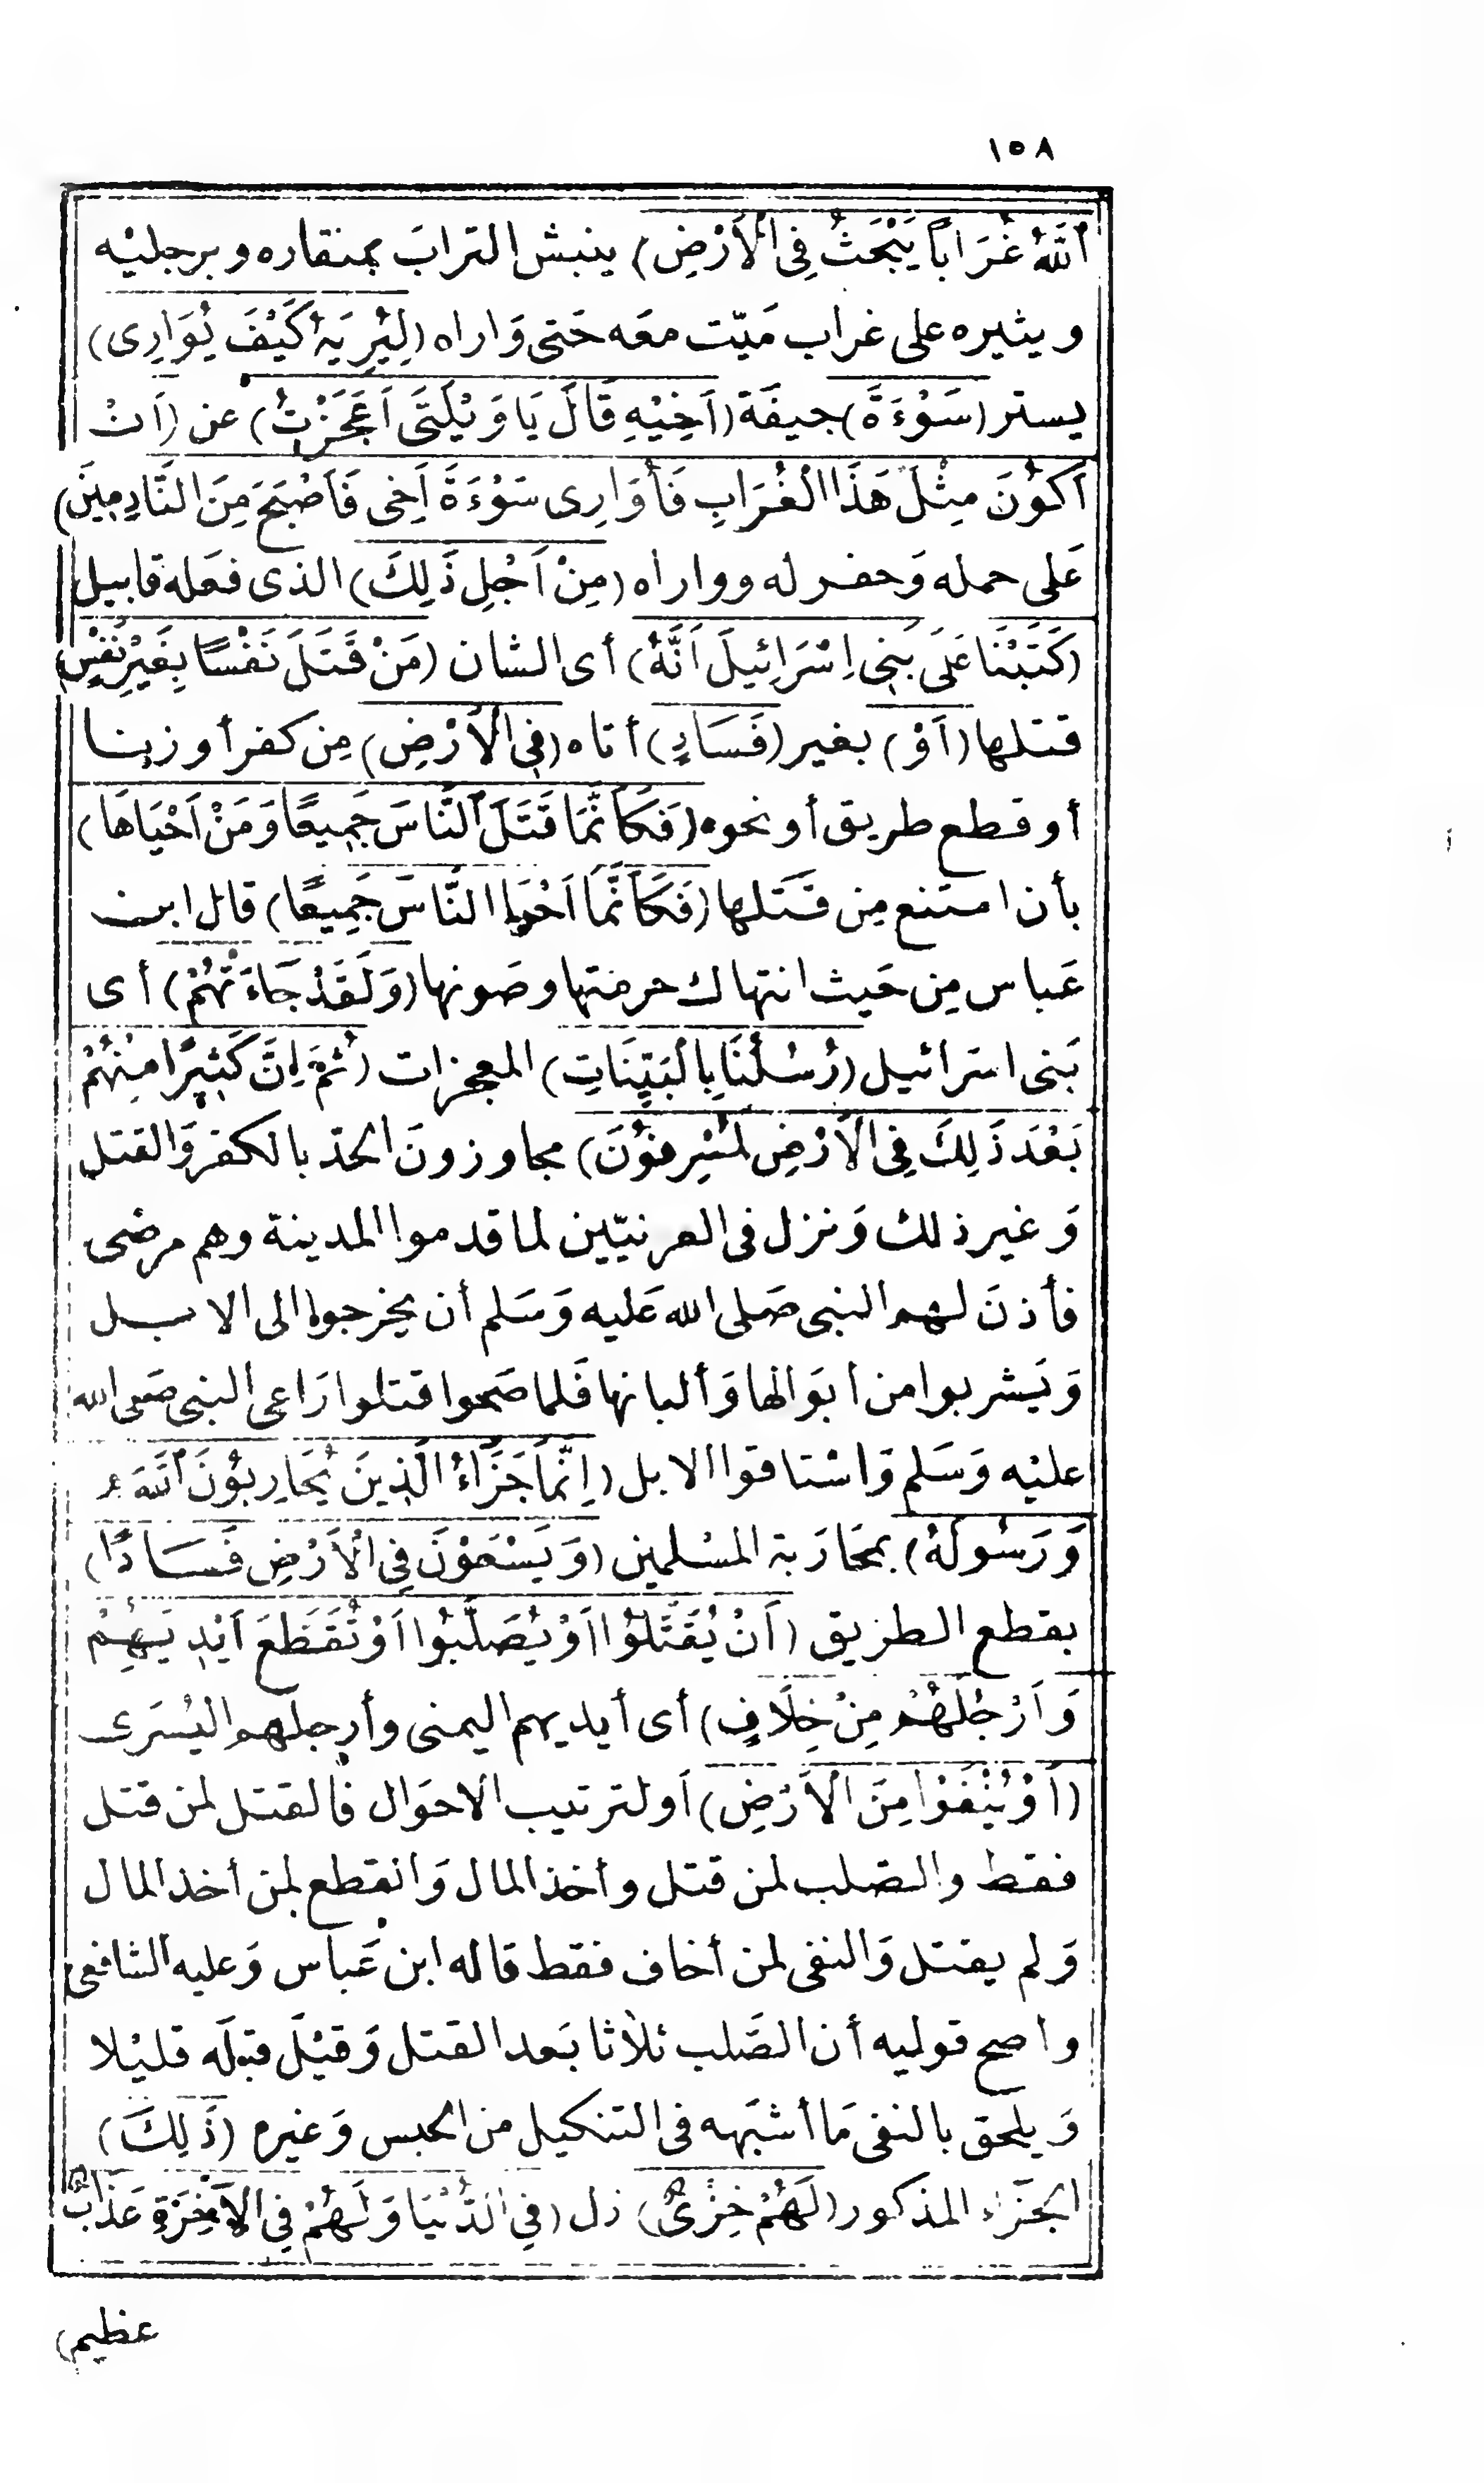 ١٥٨
ٱللَّهُ غُرَابًا يَبْحَثُ فِى ٱلْأَرْضِ) ينبش الترابَ بمنقاره وبرجليْه
ويثيره على غراب مَيّت معَه حَتى وَاراه (لِيُرِيَهُ كَيْفَ يُوَارِى)
يستر (سَوْءَةَ) جيفَة (أَخِيْهِ قَالَ يَا وَيْلَتَى أَعَجَزْتُ) عن (أَنْ
أَكُوْنَ مِثْلَ هَذَا الْغُرَابِ فَأُوَارِى سَوْءَةَ أَخِى فَأَصْبَحَ مِنَ النَّادِمِينَ)
عَلى حمله وَحفر له وواراه (مِنْ أَجْلِ ذَلِكَ) الذى فعَله قابيل
(كَتَبْنَا عَلَى بَنِى إِسْرَائِيلَ أَنَّهُ) أى الشان (مَنْ قَتَلَ نَفْسًا بِغَيْرِ نَفْسٍ)
قتلها (أَوْ) بغير (فَسَادٍ) أتاه (فِى الْأَرْضِ) مِن كفر أو زنا
أو قطع طريق أو نحوه (فَكَأَنَّمَا قَتَلَ ٱلنَّاسَ جَمِيعًا وَمَنْ أَحْيَاهَا)
بأن امتنع مِن قَتلها (فَكَأَنَّمَا أَحْيَا النَّاسَ جَمِيعًا) قال ابن
عَباس مِن حَيث انتهاك حرمَتها وصَونها (وَلَقَدْ جَاءَتْهُمْ) أى
بَنى اسرَائيل (رُسُلُنَا بِالْبَيِّنَاتِ) المعجزات (ثُمَّ إِنَّ كَثِيْرًا مِنْهُمْ
بَعْدَ ذَلِكَ فِى الْأَرْضِ لَمُسْرِفُوْنَ) مجاوزونَ الحدّ بالكفر وَالقتل
وَغير ذلك وَنزل فى العرنيّين لما قدموا المدينة وهم مرضى
فأذنَ لهم النبى صَلى الله عَليه وَسَلم أن يخرجوا الى الابل
وَيَشربوا من أبوَالها وَألبانها فَلما صَحوا قتلوا رَاعى النبى صَلى الله
عليْه وَسَلم وَاسْتاقوا الابل (إِنَّمَا جَزَاءُ الَّذِينَ يُحَارِبُوْنَ ٱللَّهَ
وَرَسُولَهُ) بمحَارَبة المسْلمين (وَيَسْعَوْنَ فِى الْأَرْضِ فَسَادًا)
بقطع الطريق (أَنْ يُقَتَّلُوْا أَوْ يُصَلَّبُوا أَوْ تُقَطَّعَ أَيْدِيَهِمْ
وَأَرْجُلُهُمْ مِنْ خِلَافٍ) أى أيديهم اليمنى وأرجلهم اليُسَرى
(أَوْ يُنْفَوْا مِنَ الْأَرْضِ) أو لترتيب الاحوَال فالقتل لمن قتل
فقط والصَلب لمن قتل وأخذ المال وَالقطع لمن أخذ المال
وَلم يقتل وَالنفى لمن أخاف فقط قاله ابن عَباس وَعليه الشافعى
وأصح قوليه أن الصَّلب ثلاثا بَعد القتل وَقيْلَ قبلَه قليْلا
وَيلحق بالنفى مَا أشبَهه فى التنكيل من الحبس وَغيره (ذَلِكَ)
الجَزاء المذكور (لَهُمْ خِزْىٌ) ذل (فِى الدُّنْيَا وَلَهُمْ فِى الْآخِرَةِ عَذَابٌ
عظيم)